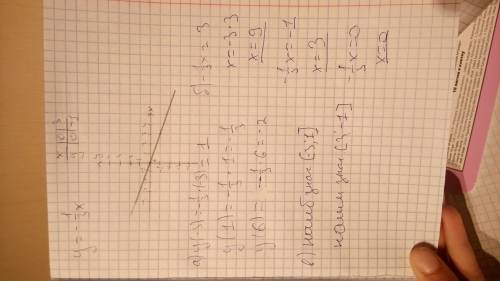 y = -1/3x
x | 0 | 3
y | 0 | -1
а) y(-3) = -1/3·(-3) = 1
y(1) = -1/3·1 = -1/3
y(6) = -1/3·6 = -2
б) -1/3x = 3
x = -3·3
x = 9
-1/3x = -1
x = 3
-1/3x = 0
x = 0
в) наиб знач [3; 1]
наим знач [3; -1]